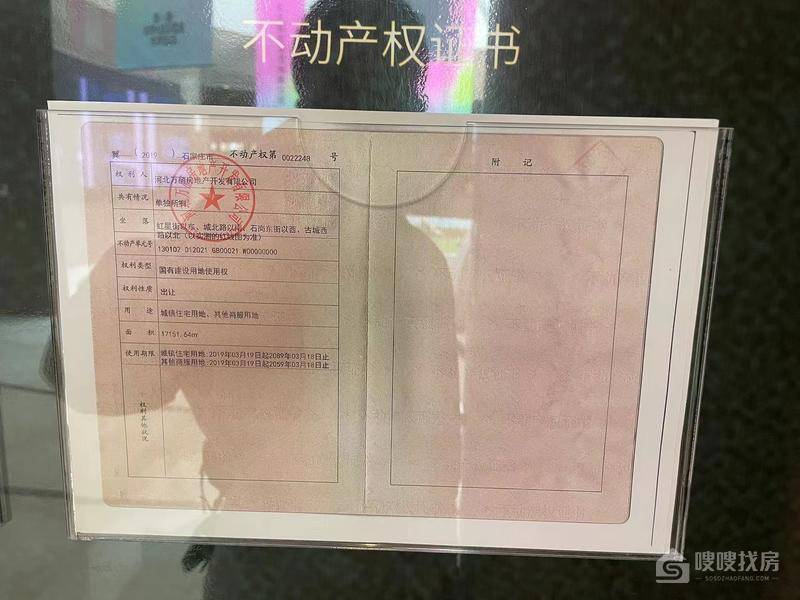 不动产权证书
冀（2019）石家庄市 不动产权第 0022248 号
附 记
权利人 河北万
房地产开发有限公司
共有情况 单独所有
坐落 红星街以东、城北路以南、石岗东街以西、古城西
路以北（以实测的红线图为准）
不动产单元号 130102 012021 GB00021 W00000000
权利类型 国有建设用地使用权
权利性质 出让
用途 城镇住宅用地、其他商服用地
面积 17151.64㎡
使用期限 城镇住宅用地:2019年03月19日起2089年03月18日止
其他商服用地:2019年03月19日起2059年03月18日止
权利其他状况
嗖嗖找房
SOSOZHAOFANG.COM